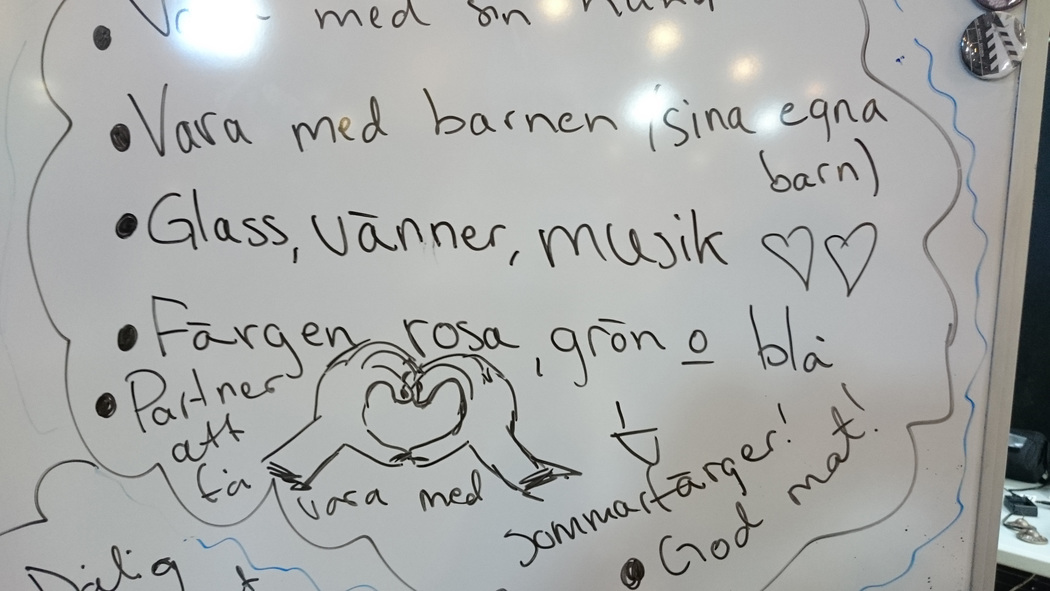 med sin hund
• Vara med barnen (sina egna
barn)
• Glass, vänner, musik ♡♡
• Färgen rosa, grön o blå
• Partner
att
få
vara med
sommarfärger!
• God mat!
Dålig